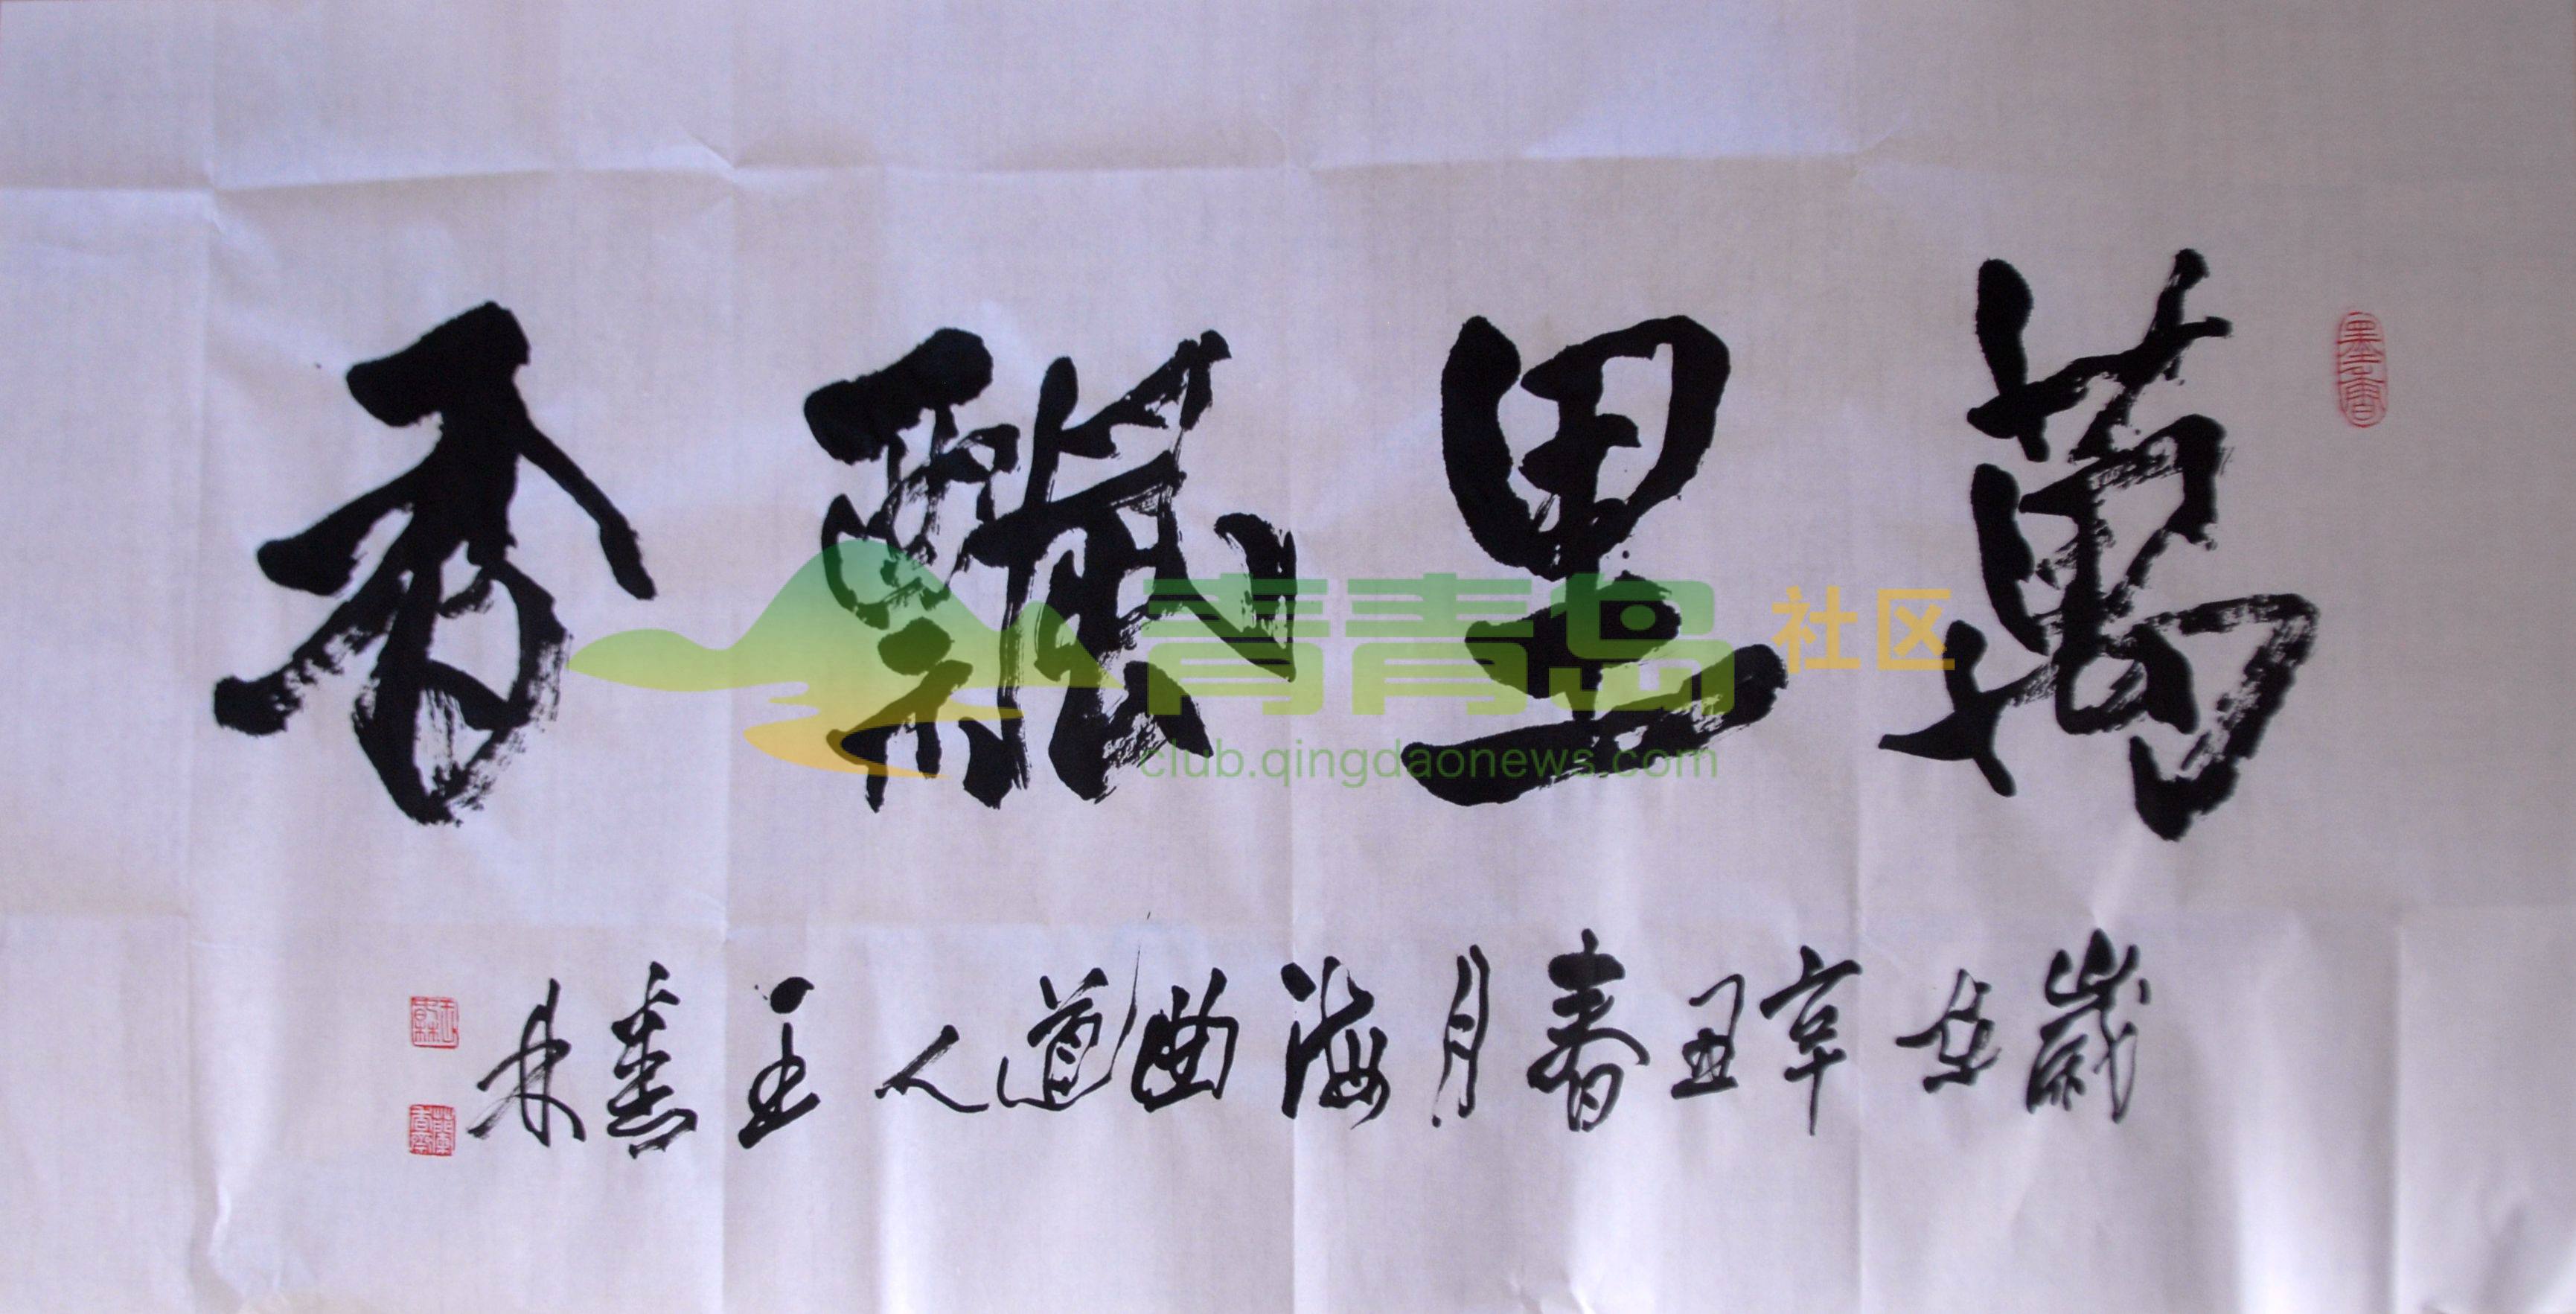 萬里飄香
歲在辛丑春月海曲道人王憲林
墨香
青青岛社区
club.qingdaonews.com